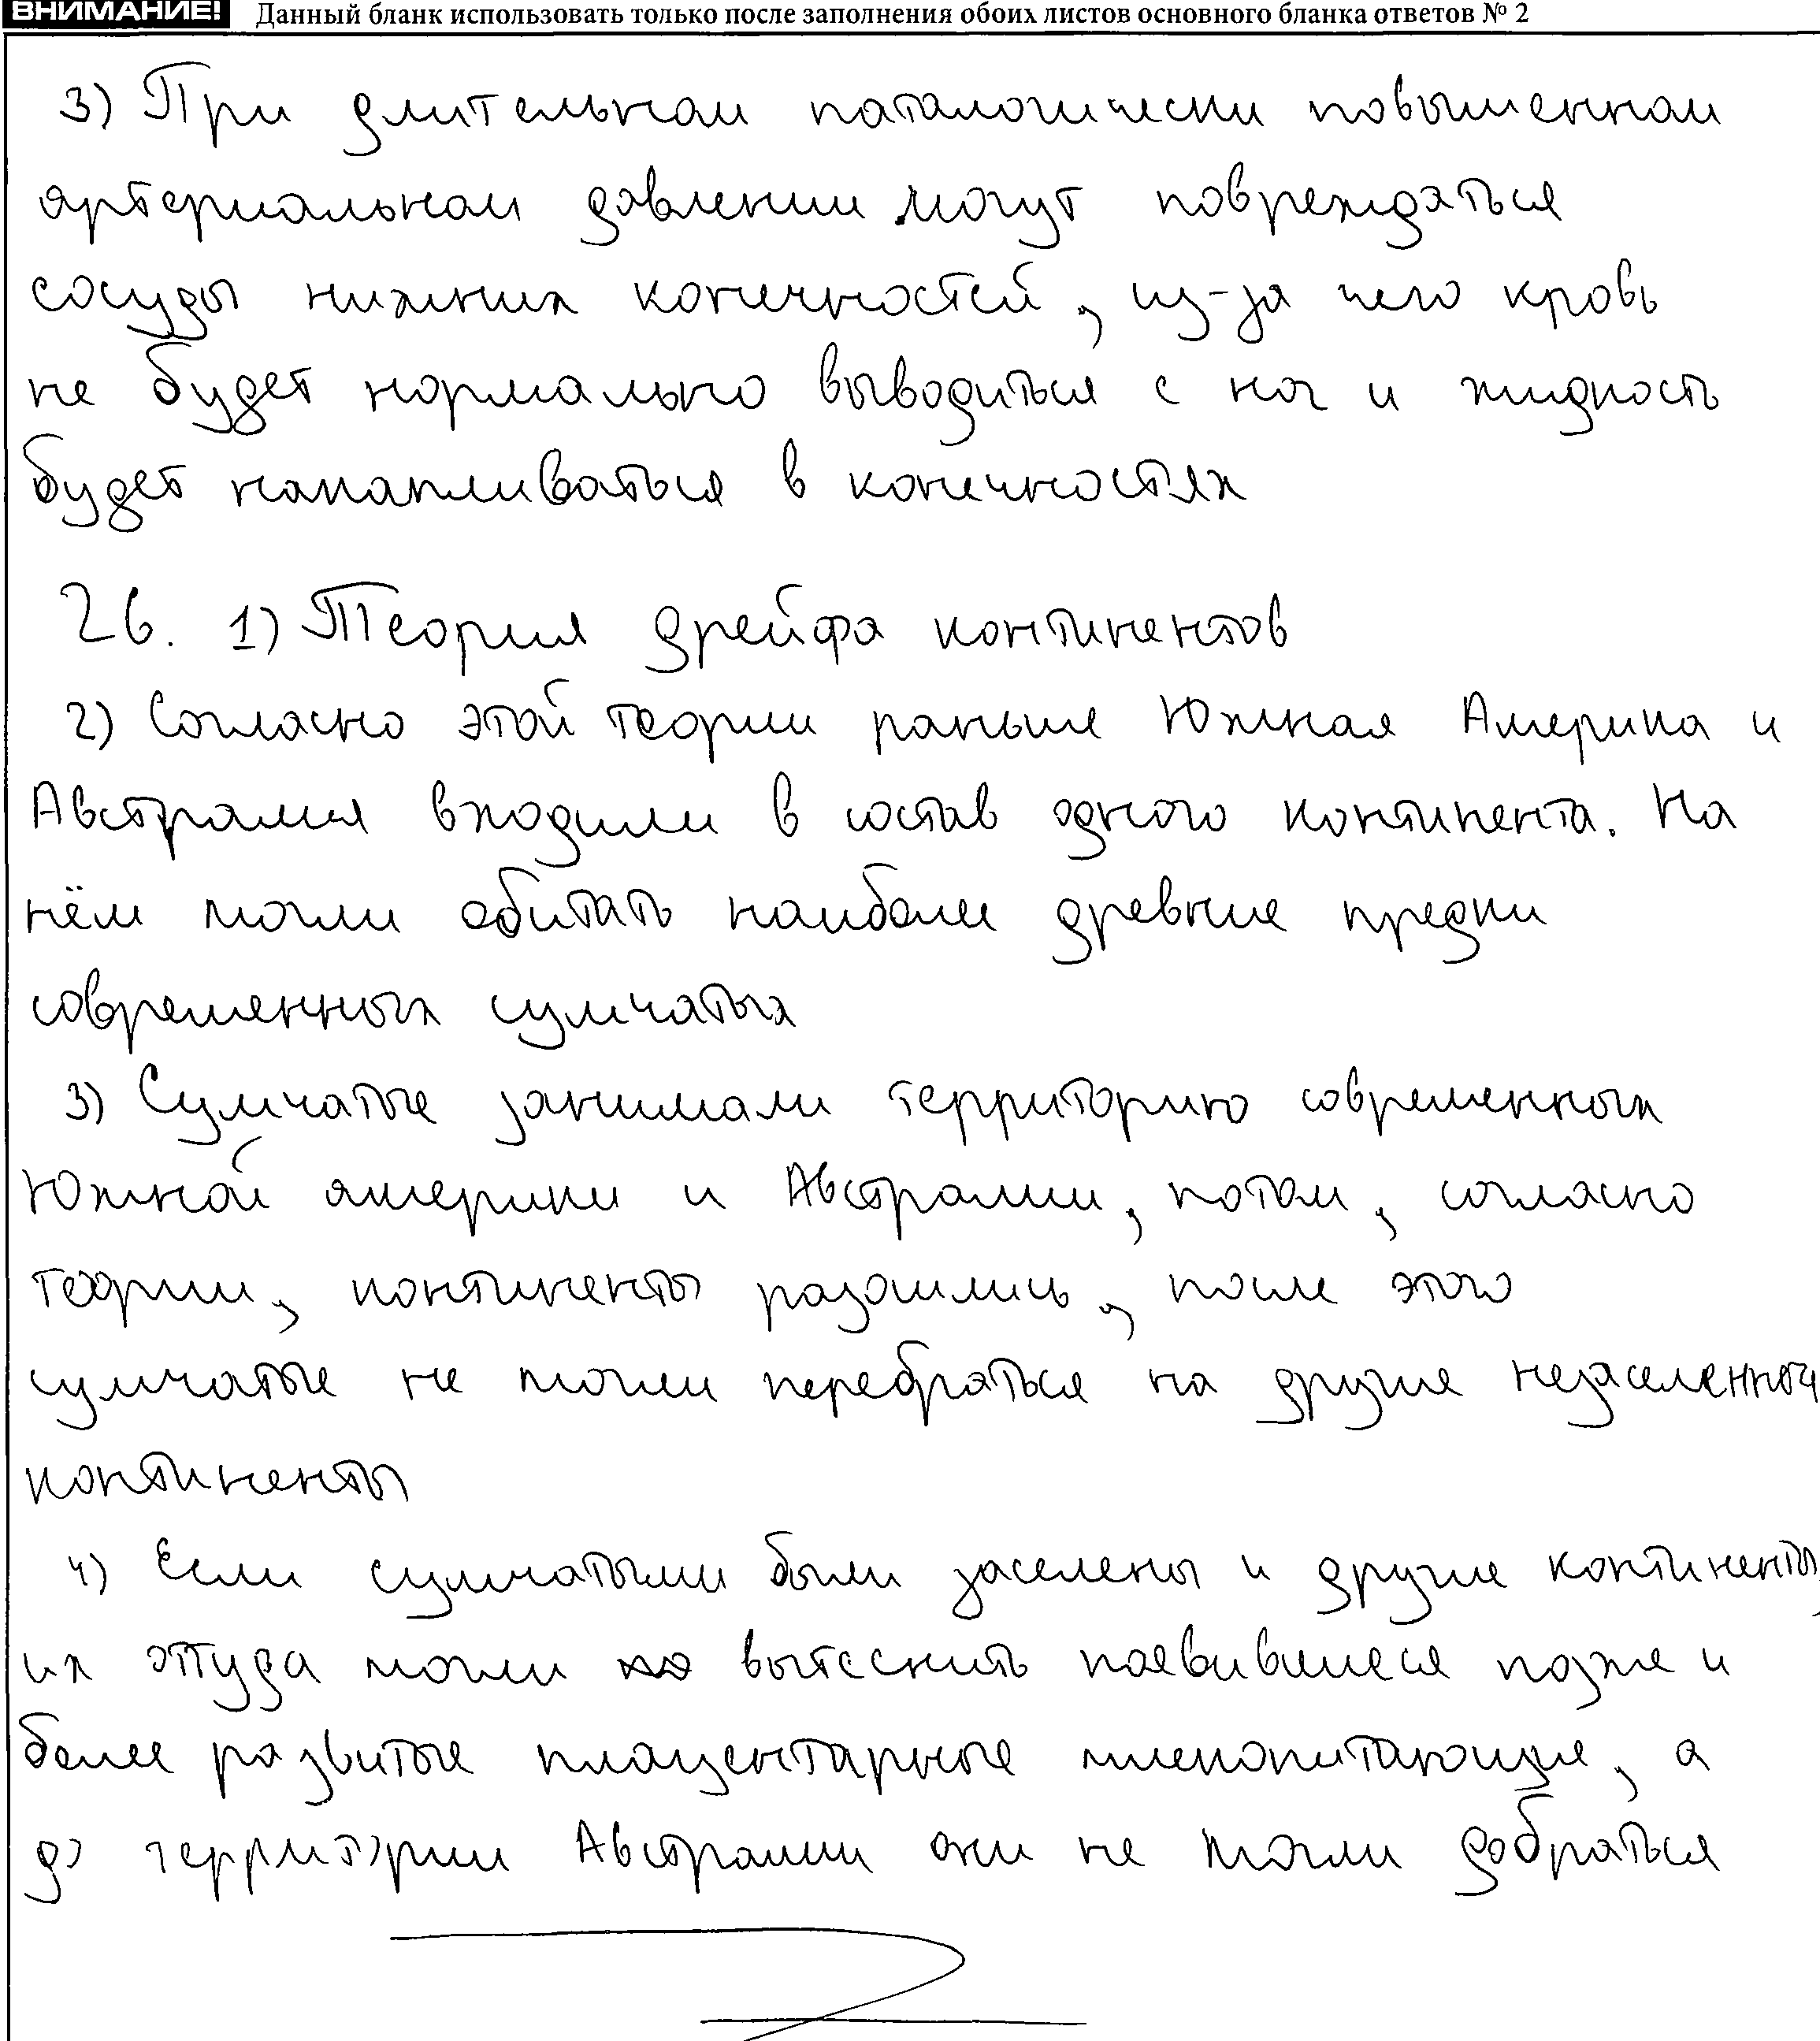 ВНИМАНИЕ! Данный бланк использовать только после заполнения обоих листов основного бланка ответов № 2
3) При длительном паталогически повышенном
артериальном давлении могут повреждаться
сосуды нижних конечностей, из-за чего кровь
не будет нормально выводиться с ног и жидкость
будет накапливаться в конечностях
26. 1) Теория дрейфа континентов
2) Согласно этой теории раньше Южная Америка и
Австралия входили в состав одного континента. На
нём могли обитать наиболее древние предки
современных сумчатых
3) Сумчатые занимали территорию современных
Южной америки и Австралии, потом, согласно
теории, континенты разошлись, после этого
сумчатые не могли перебраться на другие незаселенные
континенты
4) Если сумчатыми были заселены и другие континенты,
их оттуда могли вытеснить появившиеся позже и
более развитые плацентарные млекопитающие, а
до территории Австралии они не могли добраться